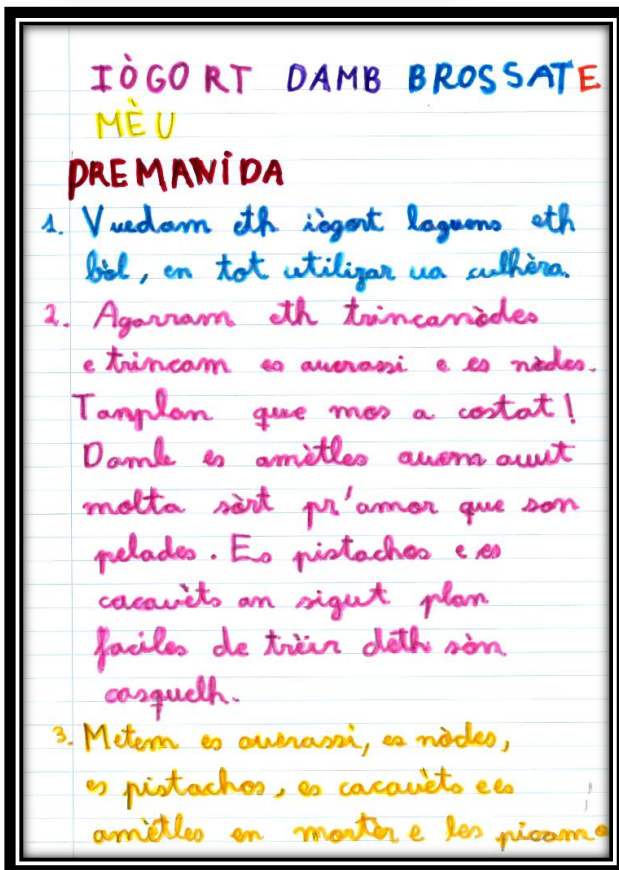 IÒGORT DAMB BROSSAT E
MÈU
PREMANIDA
1. Vuedam eth iògort laguens eth
bòl, en tot utilizar ua culhèra.
2. Agarram eth trincanòdes
e trincam es auerassi e es nòdes.
Tanplan que mos a costat!
Damb es amètles auem auut
molta sòrt pr'amor que son
pelades. Es pistachos e es
cacauèts an sigut plan
faciles de trèir deth sòn
casquelh.
3. Metem es auerassi, es nòdes,
es pistachos, es cacauèts e es
amètles en mortèr e les picam